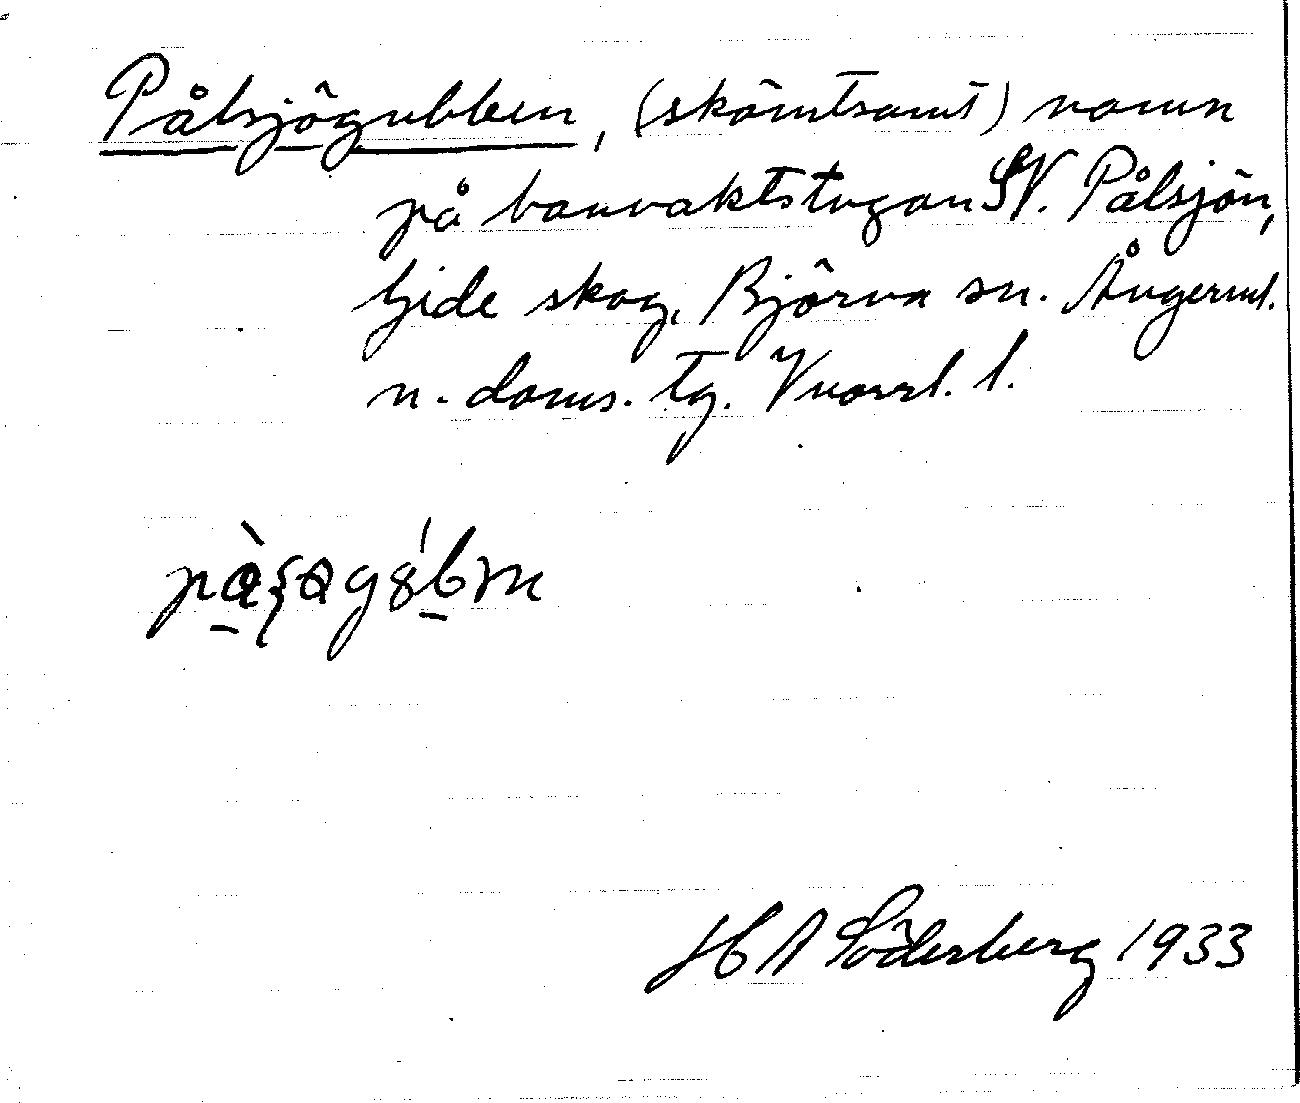 Pålsjögubben, (skämtsamt) namn
på banvaktstugan SV. Pålsjön,
Hide skog, Björna sn. Ångerml.
n. doms. tg. l.
H A Söderberg 1933